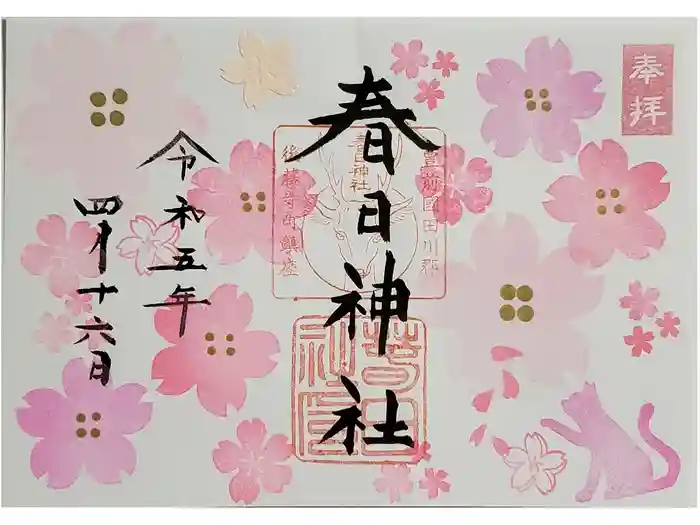 奉拝
春日神社
豊前國田川郡
春日神社
後藤寺町鎮座
春日
社印
令和五年
四月十六日